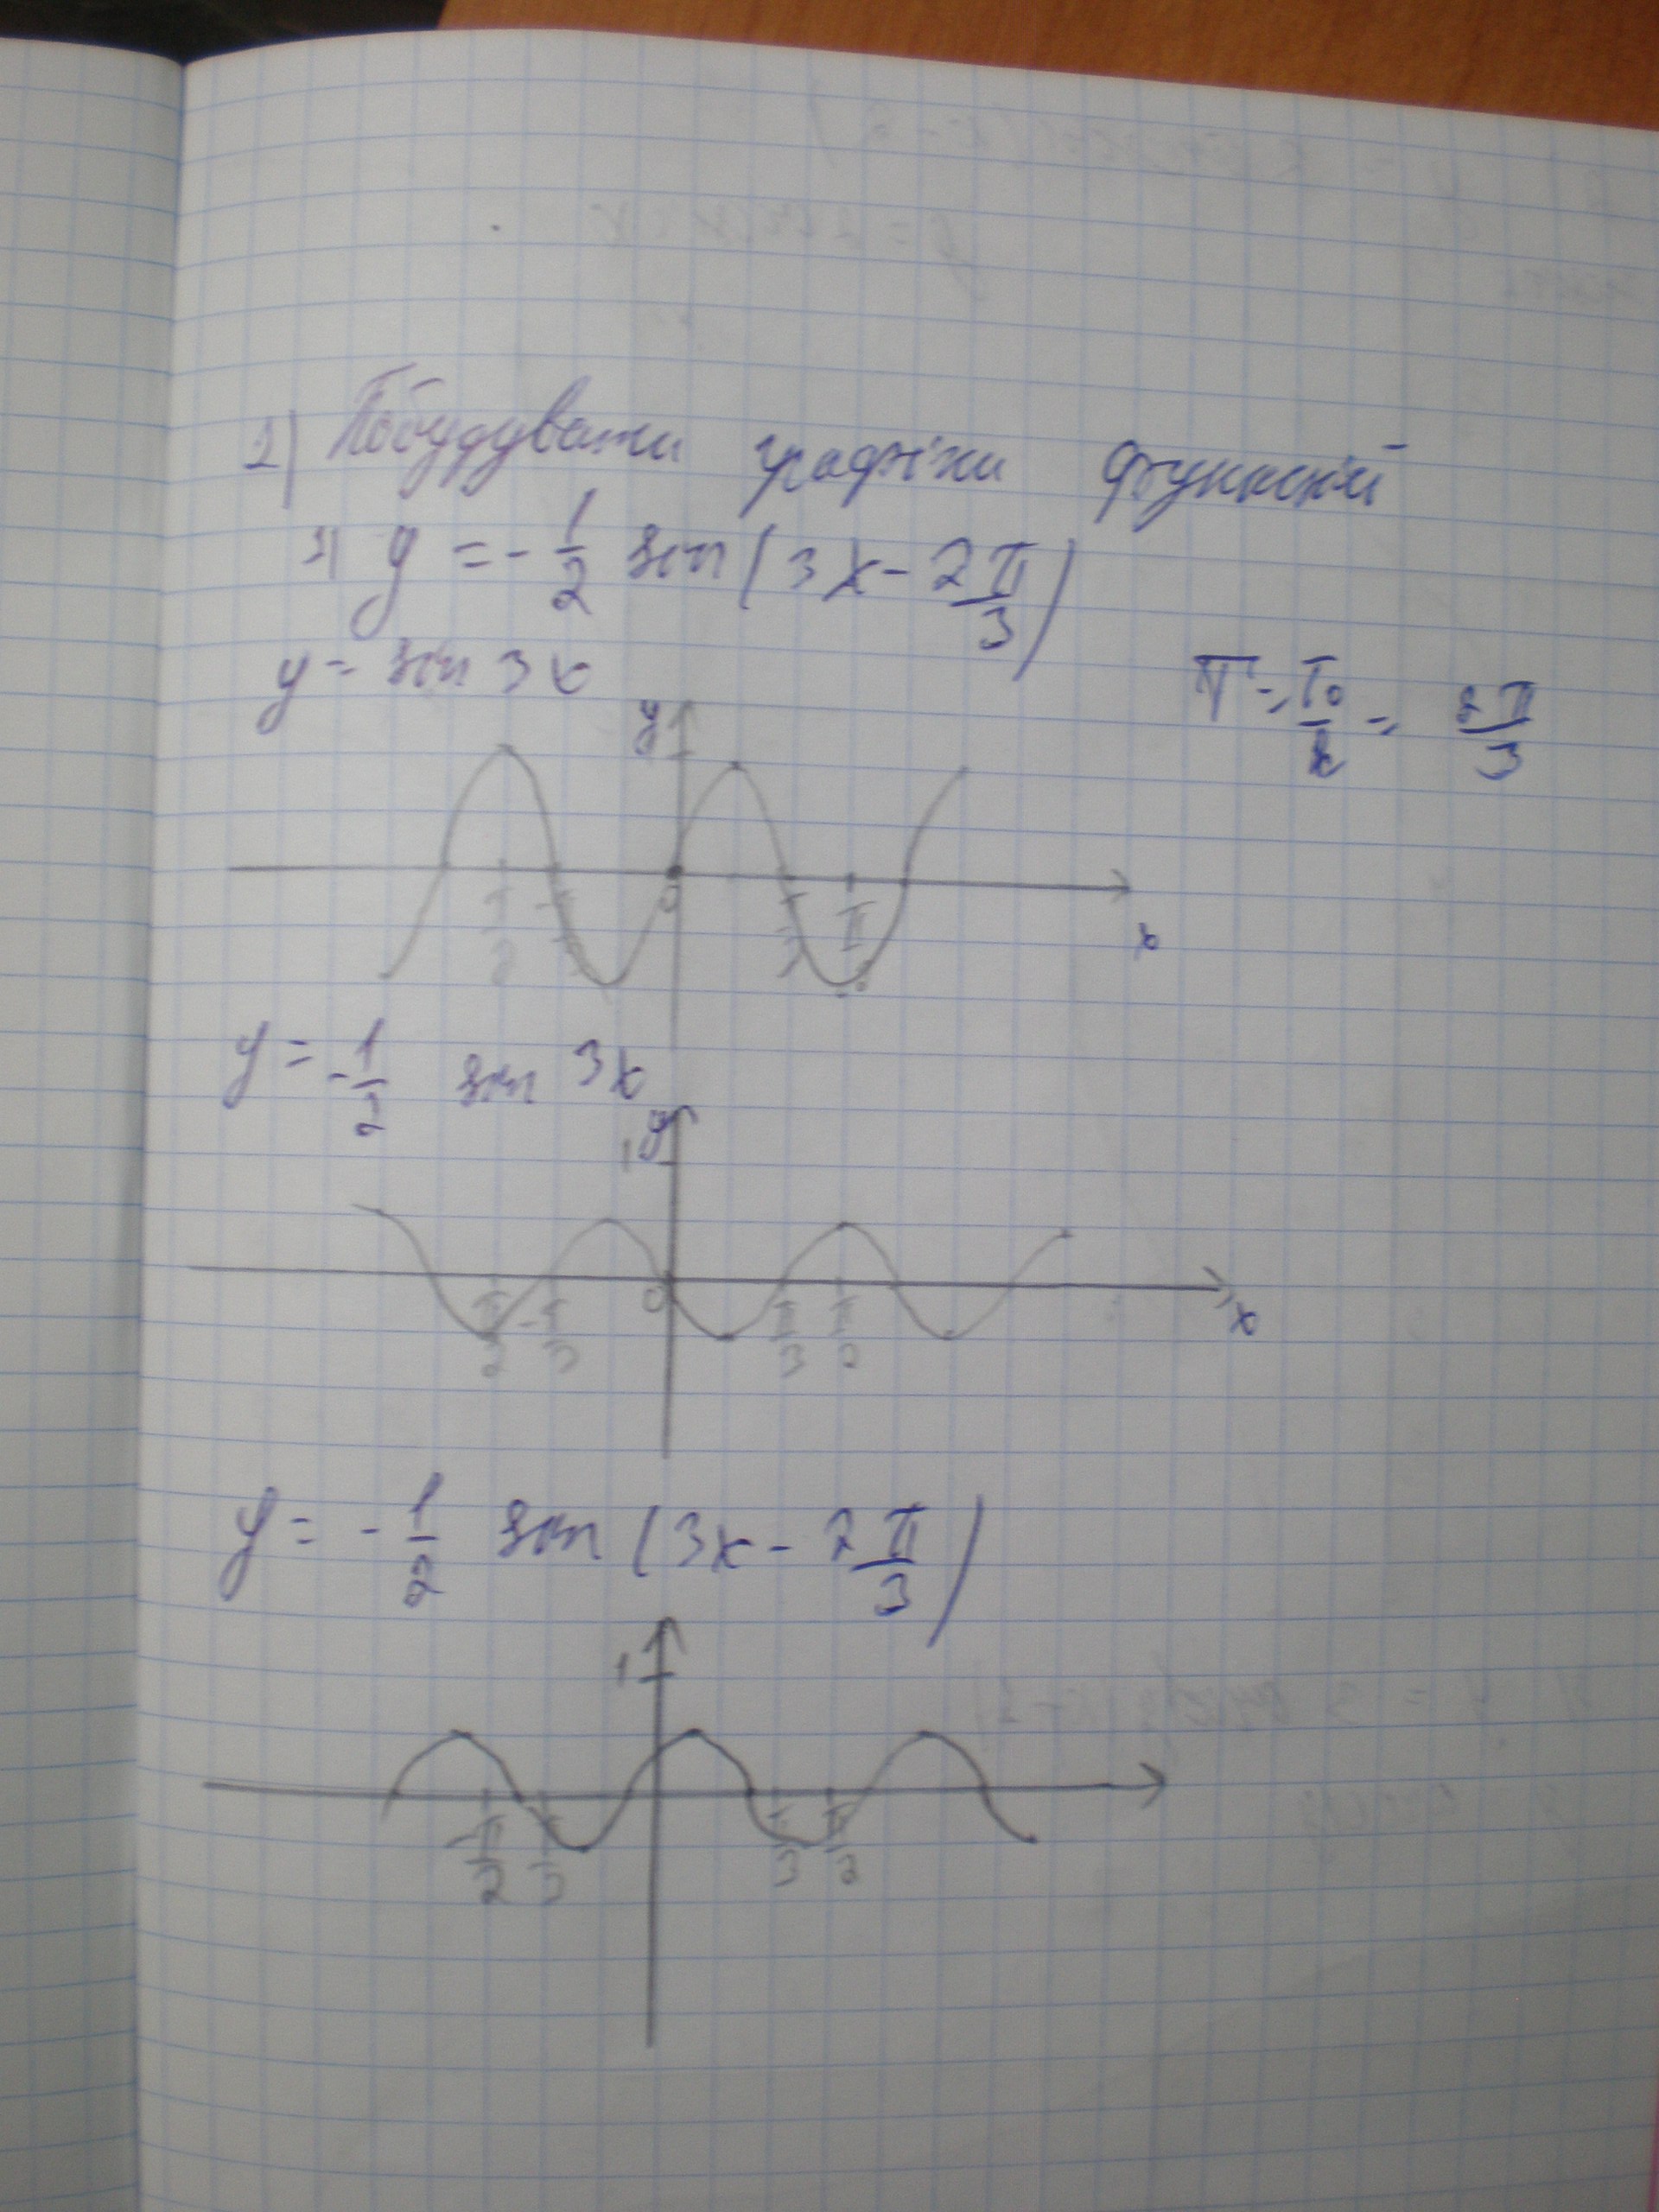 1) Побудувати графіки функцій
1) y = -1/2 sin(3x - 2π/3)
y = sin 3x
T = T₀/k = 2π/3
y
0 π/3 π/2
x
y = -1/2 sin 3x
y
1
π/2 -π/3 0 π/3 π/2
x
y = -1/2 sin(3x - 2π/3)
1
-π/2 π/3 π/3 π/2